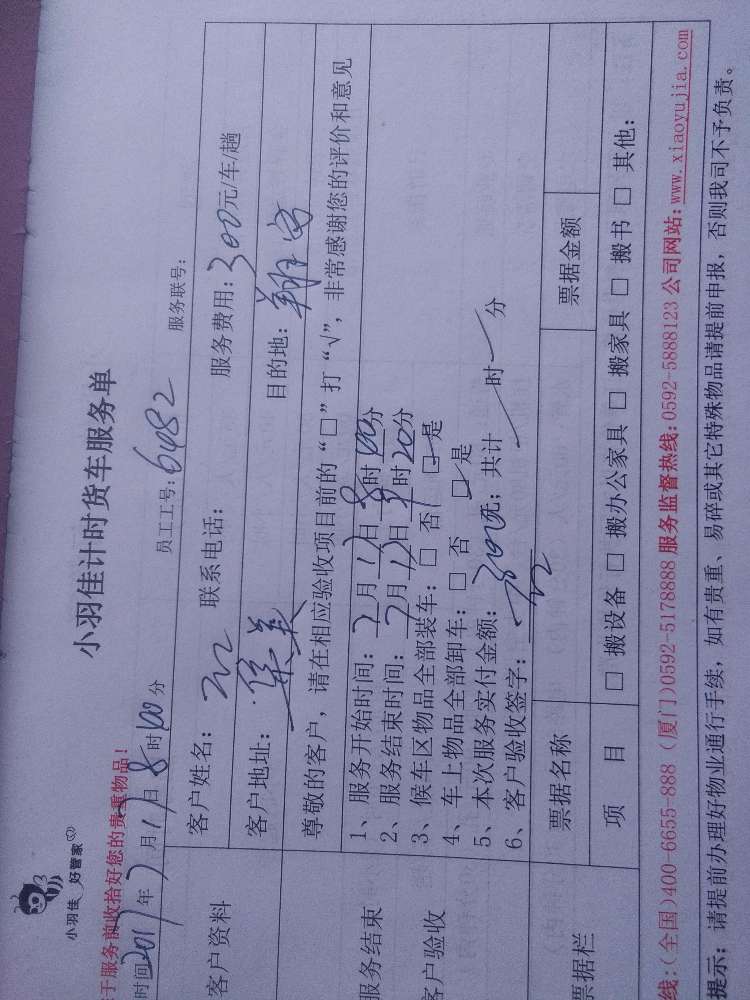 小羽佳 好管家
小羽佳计时货车服务单
于服务前收拾好您的贵重物品！
服务联号：
时间2017年7月17日8时00分 员工工号：6482
客户资料
客户姓名： 联系电话： 服务费用：300元/车/趟
客户地址： 目的地：翔安
尊敬的客户，请在相应验收项目前的“□”打“√”，非常感谢您的评价和意见
服务结束
客户验收
1、服务开始时间：7月17日8时00分
2、服务结束时间：7月17日9时20分
3、候车区物品全部装车：□ 否 □ 是
4、车上物品全部卸车：□ 否 □ 是
5、本次服务实付金额：300元；共计 时 分
6、客户验收签字：
票据栏
票据名称 票据金额
项 目 □ 搬设备 □ 搬办公家具 □ 搬家具 □ 搬书 □ 其他：
线：(全国)400-6655-888 (厦门)0592-5178888 服务监督热线：0592-5888123 公司网站：www.xiaoyujia.com
提示：请提前办理好物业通行手续，如有贵重、易碎或其它特殊物品请提前申报，否则我司不予负责。